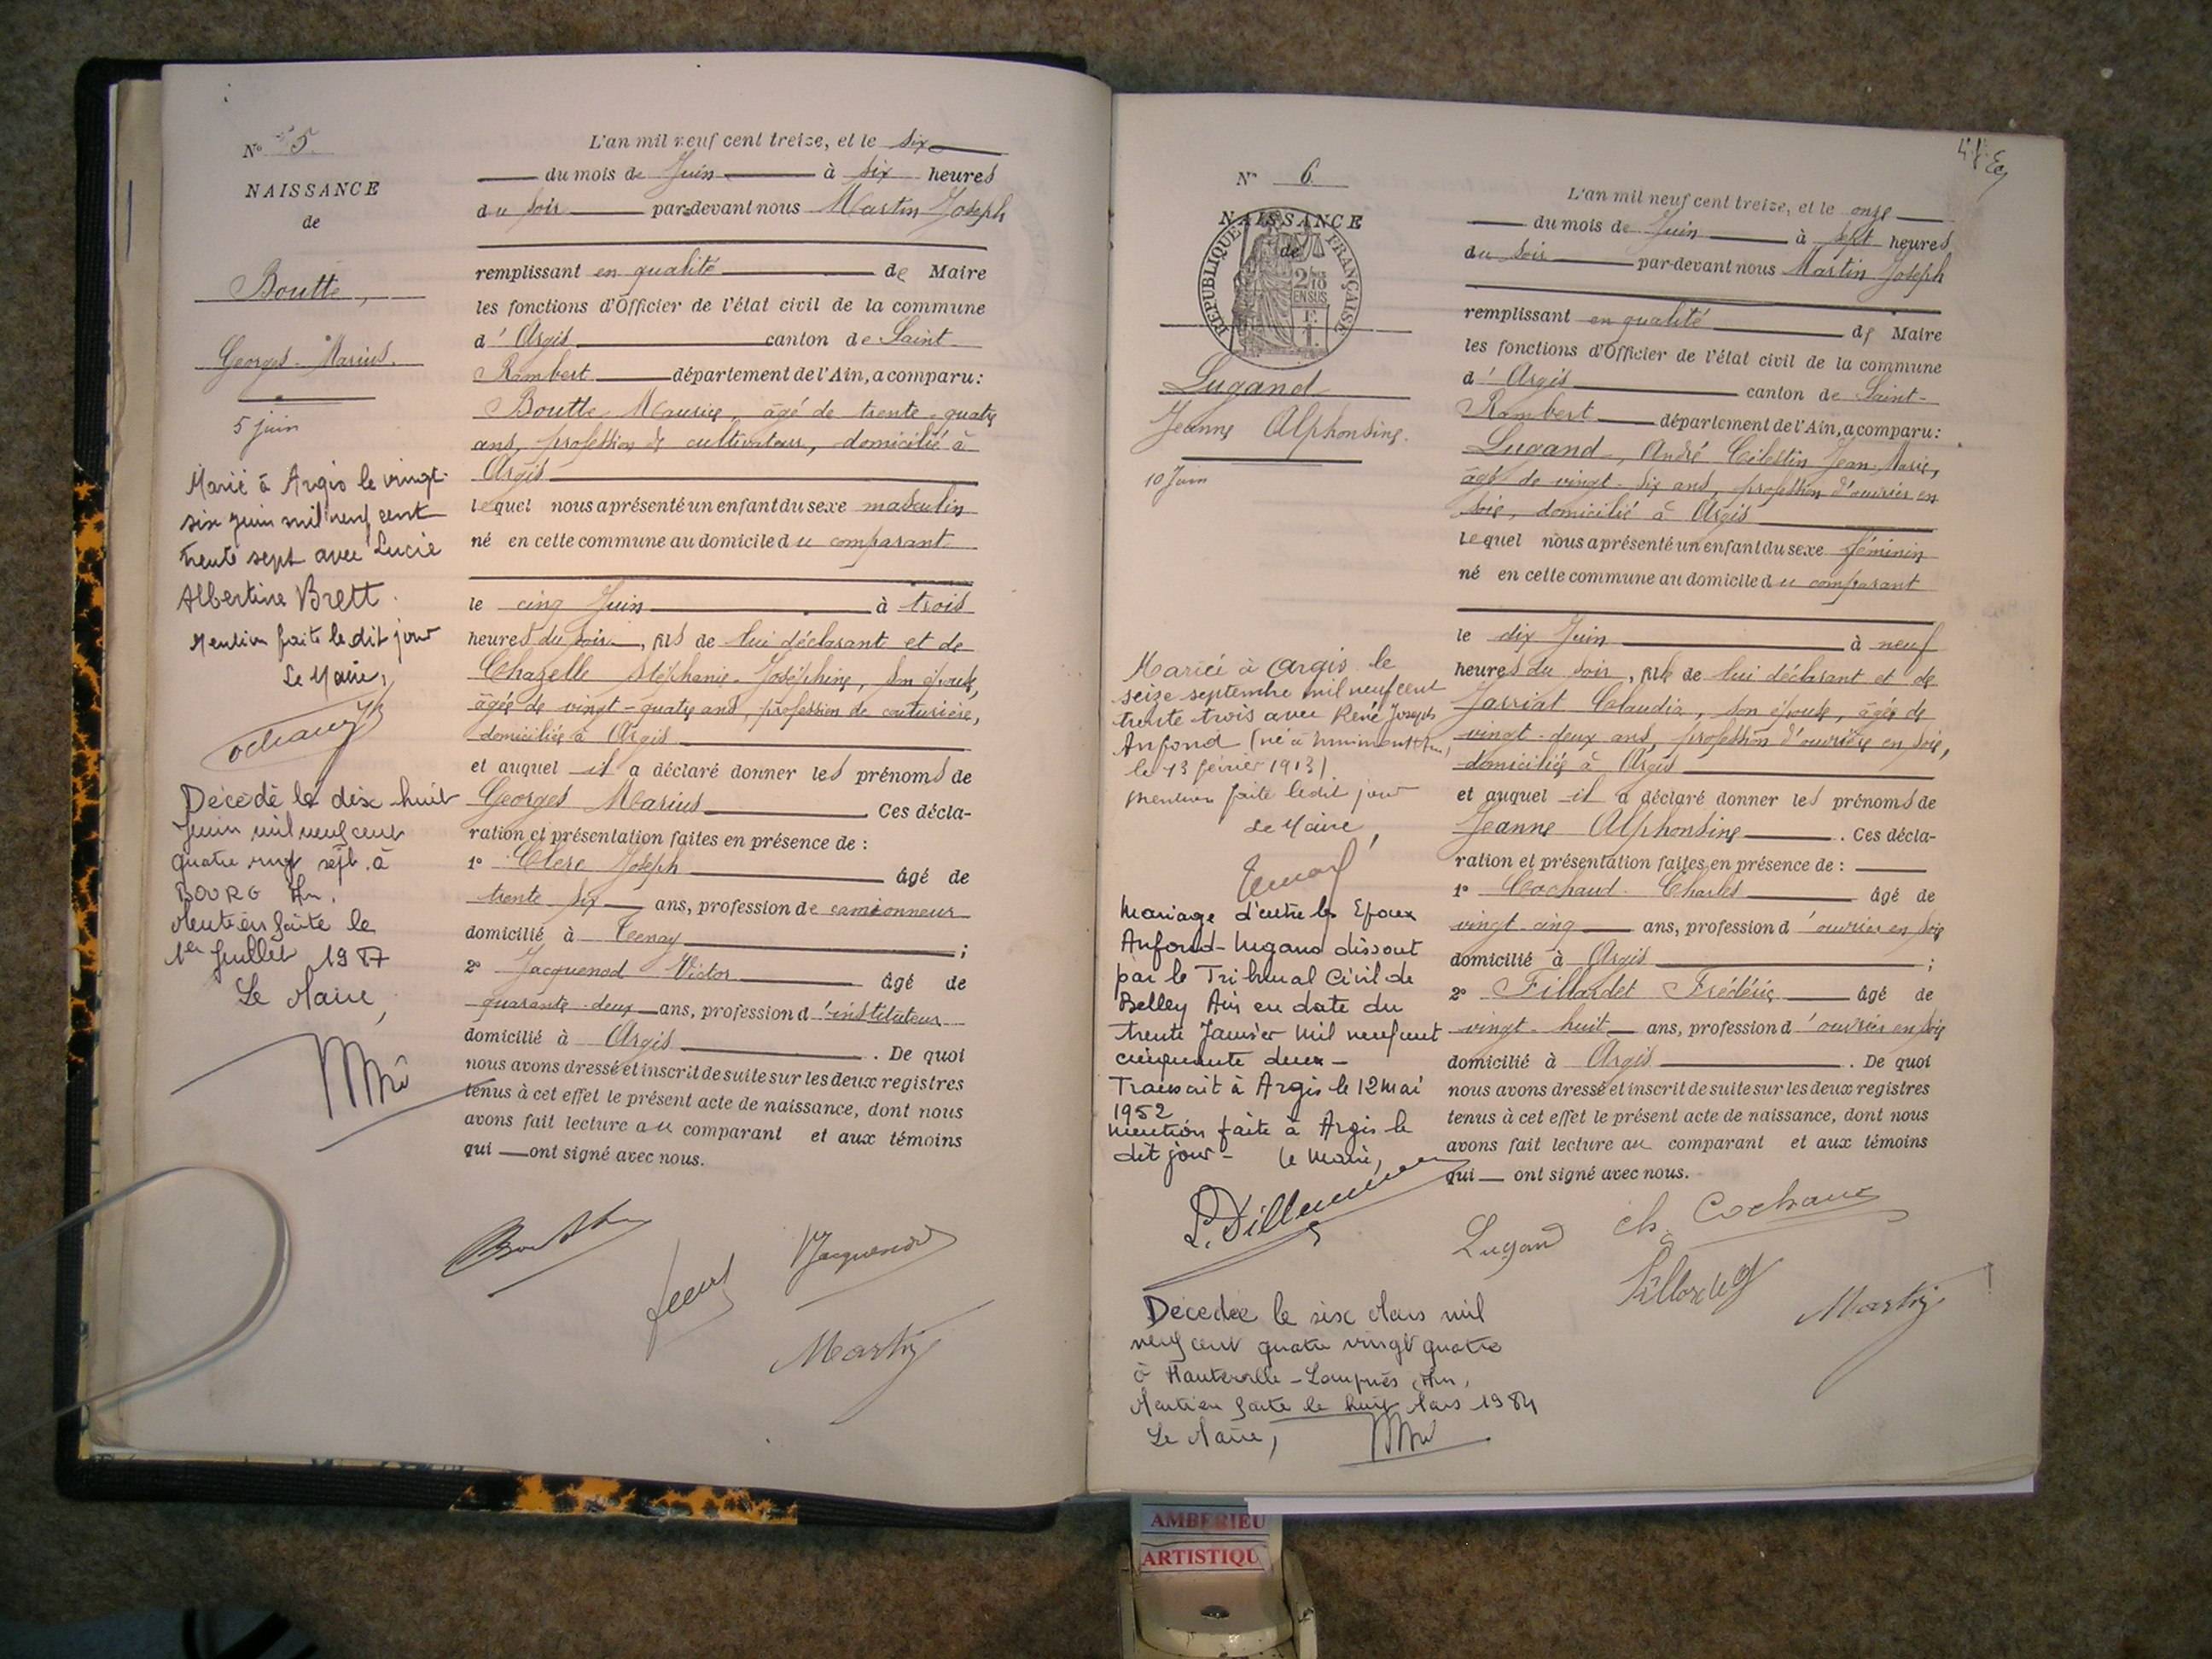 N° 5
NAISSANCE
de
Boutte,
Georges-Marius.
5 juin
Marié à Argis le vingt-
six juin mil neuf cent
trente sept avec Lucie
Albertine Brett.
Mention faite le dit jour
Le Maire,
Décédé le dix huit
Juin mil neuf cent
quatre vingt sept à
BOURG Ain.
Mention faite le
1er Juillet 1987
Le Maire,
L'an mil neuf cent treize, et le six
du mois de Juin à six heures
du soir par-devant nous Martin Joseph
remplissant en qualité de Maire
les fonctions d'Officier de l'état civil de la commune
d'Argis canton de Saint-
Rambert département de l'Ain, a comparu:
Boutte Maurice, âgé de trente-quatre
ans, profession de cultivateur, domicilié à
Argis
lequel nous a présenté un enfant du sexe masculin
né en cette commune au domicile du comparant
le cinq Juin à trois
heures du soir, fils de lui déclarant et de
Chazelle Stéphanie-Joséphine, son épouse,
âgée de vingt-quatre ans, profession de couturière,
domiciliée à Argis
et auquel il a déclaré donner les prénoms de
Georges Marius Ces décla-
ration et présentation faites en présence de :
1° Clerc Joseph âgé de
trente six ans, profession de camionneur
domicilié à Tenay ;
2° Jacquenod Victor âgé de
quarante-deux ans, profession d'instituteur
domicilié à Argis . De quoi
nous avons dressé et inscrit de suite sur les deux registres
tenus à cet effet le présent acte de naissance, dont nous
avons fait lecture au comparant et aux témoins
qui ont signé avec nous.
Boutte
Jacquenod
Martin
N° 6
NAISSANCE
de
RÉPUBLIQUE FRANÇAISE
2/10
EN SUS
Lugand
Jeanne Alphonsine.
10 Juin
Mariée à Argis le
seize septembre mil neuf cent
trente trois avec René Joseph
Anfond (né à
le 13 février 1913)
Mention faite ledit jour
Le Maire,
Mariage d'entre les Epoux
Anfond-Lugand dissout
par le Tribunal Civil de
Belley Ain en date du
trente Janvier mil neuf cent
cinquante deux -
Transcrit à Argis le 12 Mai
1952
Mention faite à Argis le
dit jour - Le Maire,
Décédée le six Mars mil
neuf cent quatre vingt quatre
à Hauteville-Lompnès Ain,
Mention faite le huit Mars 1984
Le Maire,
L'an mil neuf cent treize, et le onze
du mois de Juin à sept heures
du soir par-devant nous Martin Joseph
remplissant en qualité de Maire
les fonctions d'Officier de l'état civil de la commune
d'Argis canton de Saint-
Rambert département de l'Ain, a comparu:
Lugand, André Célestin Jean-Marie,
âgé de vingt-six ans, profession d'ouvrier en
soie, domicilié à Argis
lequel nous a présenté un enfant du sexe féminin
né en cette commune au domicile du comparant
le dix Juin à neuf
heures du soir, fille de lui déclarant et de
Jarriat Claudia, son épouse, âgée de
vingt-deux ans, profession d'ouvrière en soie,
domiciliée à Argis
et auquel il a déclaré donner les prénoms de
Jeanne Alphonsine . Ces décla-
ration et présentation faites en présence de :
1° Cochaud Charles âgé de
vingt-cinq ans, profession d'ouvrier en soie
domicilié à Argis ;
2° Fillardet Frédéric âgé de
vingt-huit ans, profession d'ouvrier en soie
domicilié à Argis . De quoi
nous avons dressé et inscrit de suite sur les deux registres
tenus à cet effet le présent acte de naissance, dont nous
avons fait lecture au comparant et aux témoins
qui ont signé avec nous.
Lugand ch. Cochaud
Fillardet
Martin
AMBERIEU
ARTISTIQU